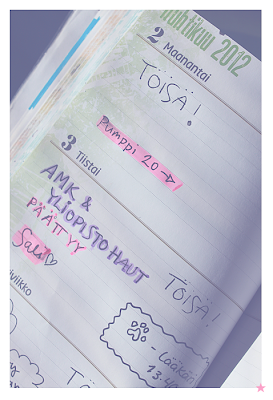 huhtikuu 2012
2 Maanantai
TÖISÄ!
Pumppi 20 →
3 Tiistai
AMK &
YLIOPISTO HAUT
PÄÄTTYY!
Sali ♡
TÖISÄ!
- Lääkäri
13.40